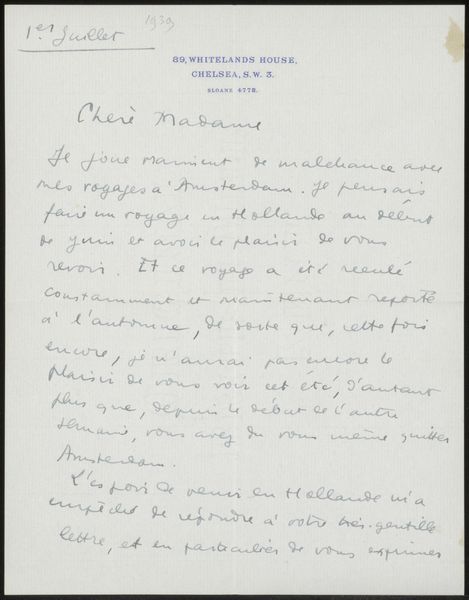 1er Juillet
1939
89, WHITELANDS HOUSE,
CHELSEA, S.W. 3.
SLOANE 4778.
Chère Madame
Je joue vraiment de malchance avec
mes voyages à Amsterdam. Je pensais
faire un voyage en Hollande au début
de Juin et avoir le plaisir de vous
revoir. Et ce voyage a été reculé
constamment et maintenant reporté
à l'automne, de sorte que, cette fois
encore, je n'aurai pas encore le
plaisir de vous voir cet été, d'autant
plus que, depuis le début de l'autre
semaine, vous avez du vous même quitter
Amsterdam.
L'espoir de venir en Hollande m'a
empêché de répondre à votre très gentille
lettre, et en particulier de vous exprimer